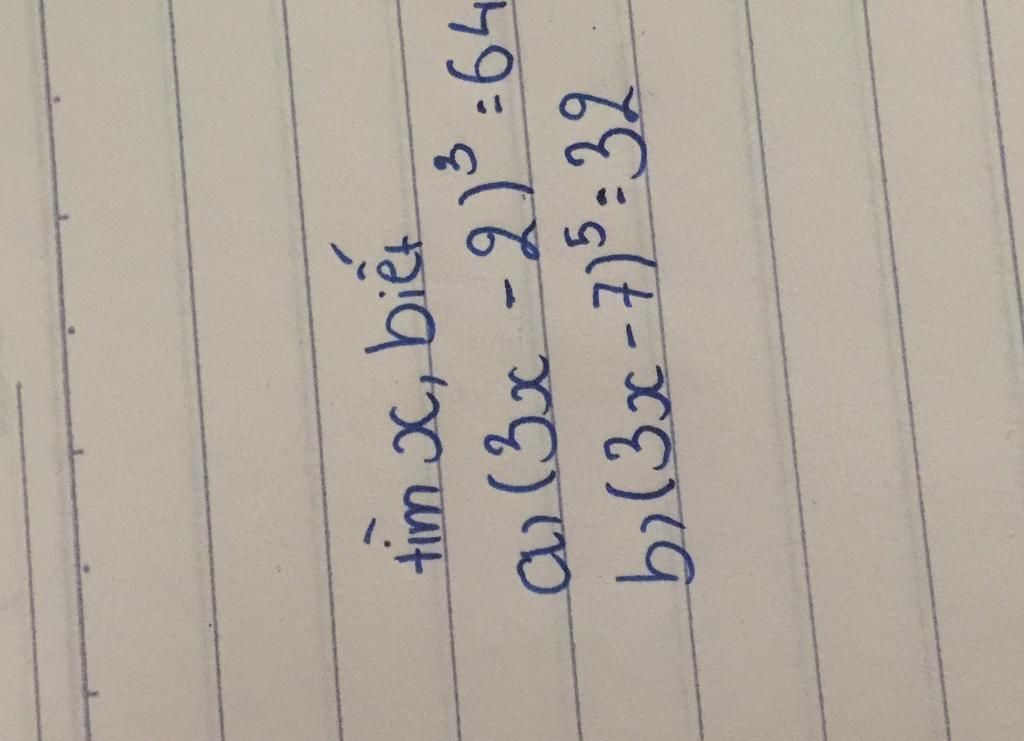 tìm x, biết
a) (3x - 2)³ = 64
b) (3x - 7)⁵ = 32